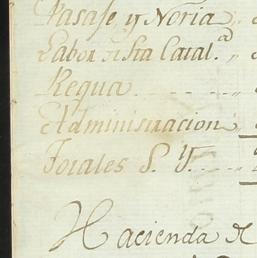 Pasaje y Noria
Labor de Sta Catal.ª
Regua
Administracion
Totales S. Y.
Hacienda de